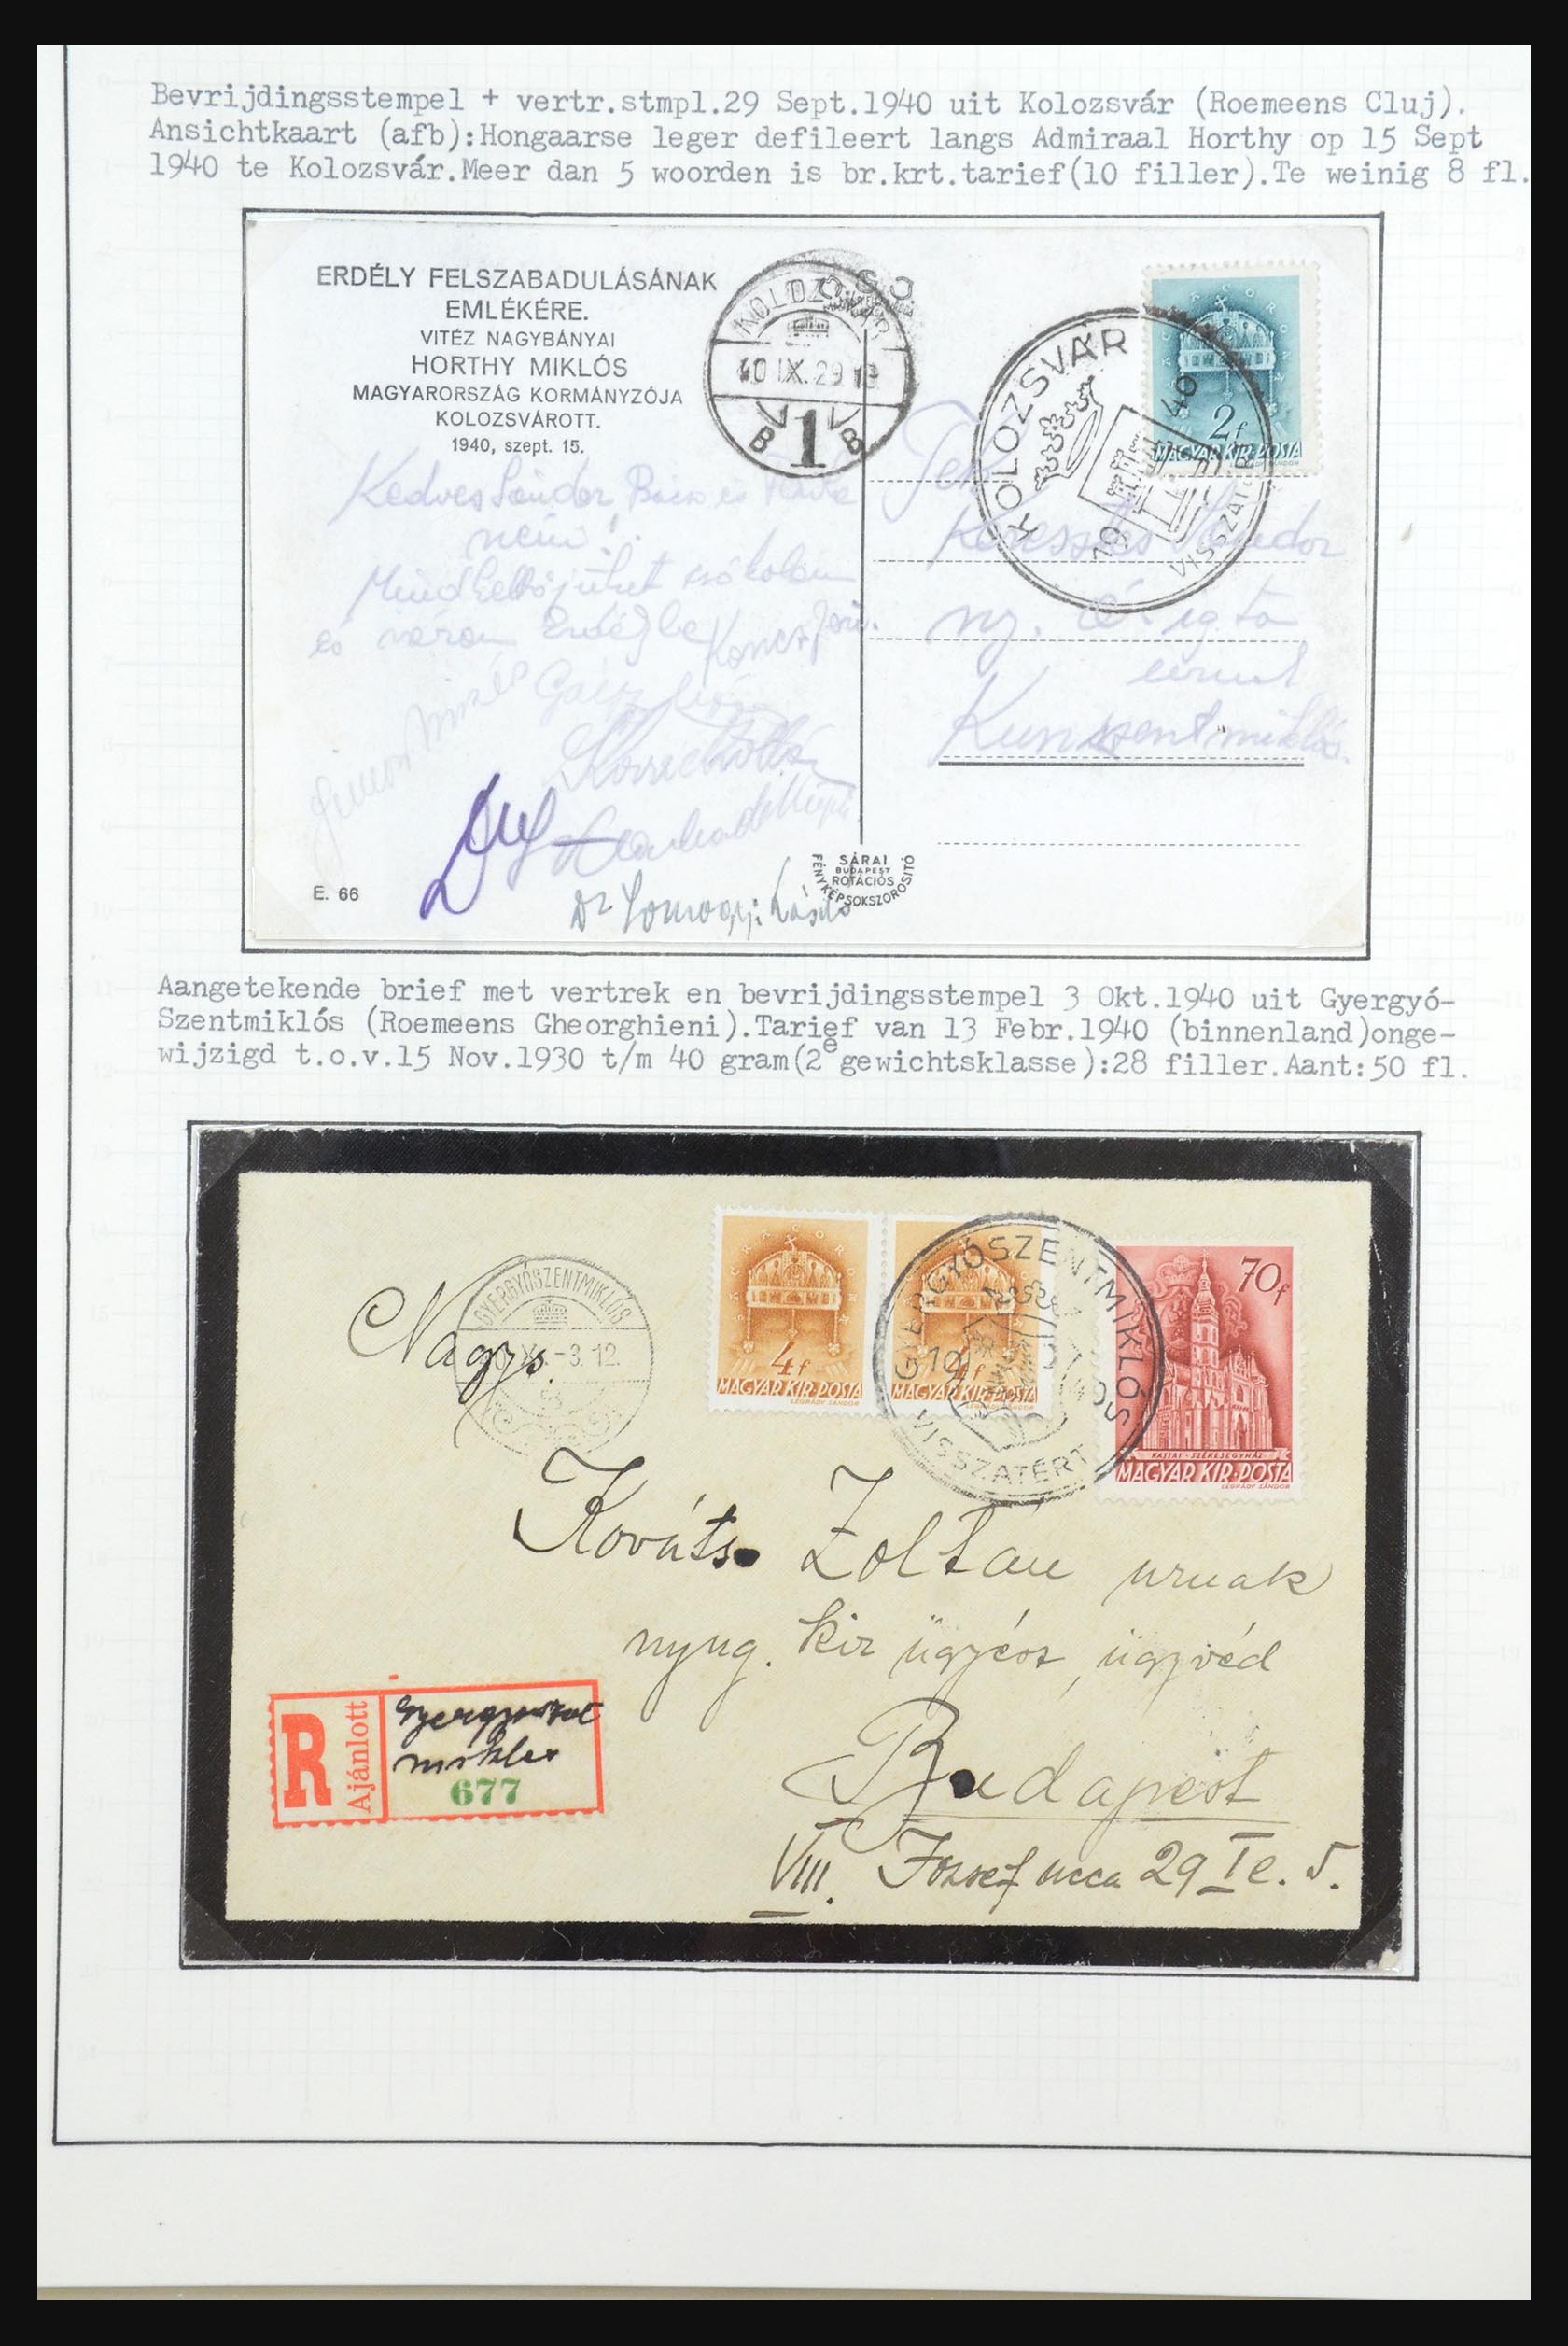 Bevrijdingsstempel + vertr.stmpl.29 Sept.1940 uit Kolozsvár (Roemeens Cluj).
Ansichtkaart (afb):Hongaarse leger defileert langs Admiraal Horthy op 15 Sept
1940 te Kolozsvár.Meer dan 5 woorden is br.krt.tarief(10 filler).Te weinig 8 fl.
ERDÉLY FELSZABADULÁSÁNAK
EMLÉKÉRE.
VITÉZ NAGYBÁNYAI
HORTHY MIKLÓS
MAGYARORSZÁG KORMÁNYZÓJA
KOLOZSVÁROTT.
1940, szept. 15.
KOLOZSVÁR
40 IX. 29
B 1 B
KOLOZSVÁR
1940
VISSZATÉRT
2f
MAGYAR KIR·POSTA
Kedves Sándor
Mindkettőjüket csókolom
és várom Erdélybe
Sándor
Kunszentmiklós.
Dr Somogyi László
E. 66
SÁRAI
BUDAPEST
ROTÁCIÓS
FÉNYKÉPSOKSZOROSITÓ
Aangetekende brief met vertrek en bevrijdingsstempel 3 Okt.1940 uit Gyergyó-
Szentmiklós (Roemeens Gheorghieni).Tarief van 13 Febr.1940 (binnenland)onge-
wijzigd t.o.v.15 Nov.1930 t/m 40 gram(2e gewichtsklasse):28 filler.Aant:50 fl.
GYERGYÓSZENTMIKLÓS
-3. 12.
4f
MAGYAR KIR·POSTA
LÉGRÁDY SÁNDOR
4f
MAGYAR KIR·POSTA
LÉGRÁDY SÁNDOR
GYERGYÓSZENTMIKLÓS
1940
VISSZATÉRT
70f
KASSAI-SZÉKESEGYHÁZ
MAGYAR KIR·POSTA
LÉGRÁDY SÁNDOR
Nagys.
Kováts Zoltán urnak
nyug. kir ügyész, ügyvéd
Budapest
VIII. József ucca 29 I e. 5.
R
Ajánlott
677